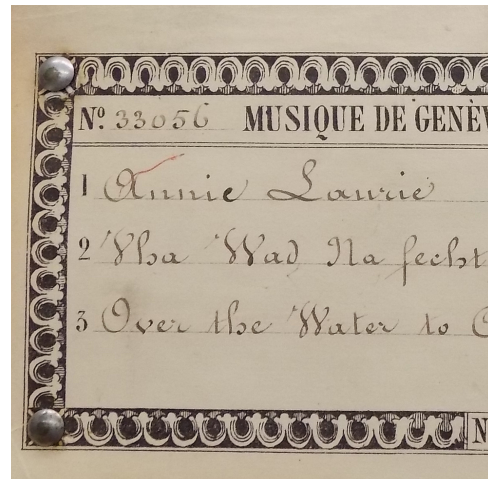 Nº 33056 MUSIQUE DE GENÈV
1 Annie Laurie
2 Wha Wad Na fecht
3 Over the Water to C
N